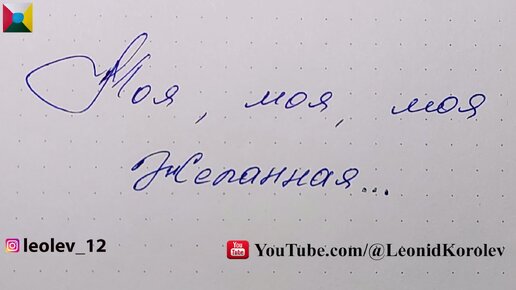 Моя, моя, моя
Желанная...
leolev_12
YouTube.com/@LeonidKorolev